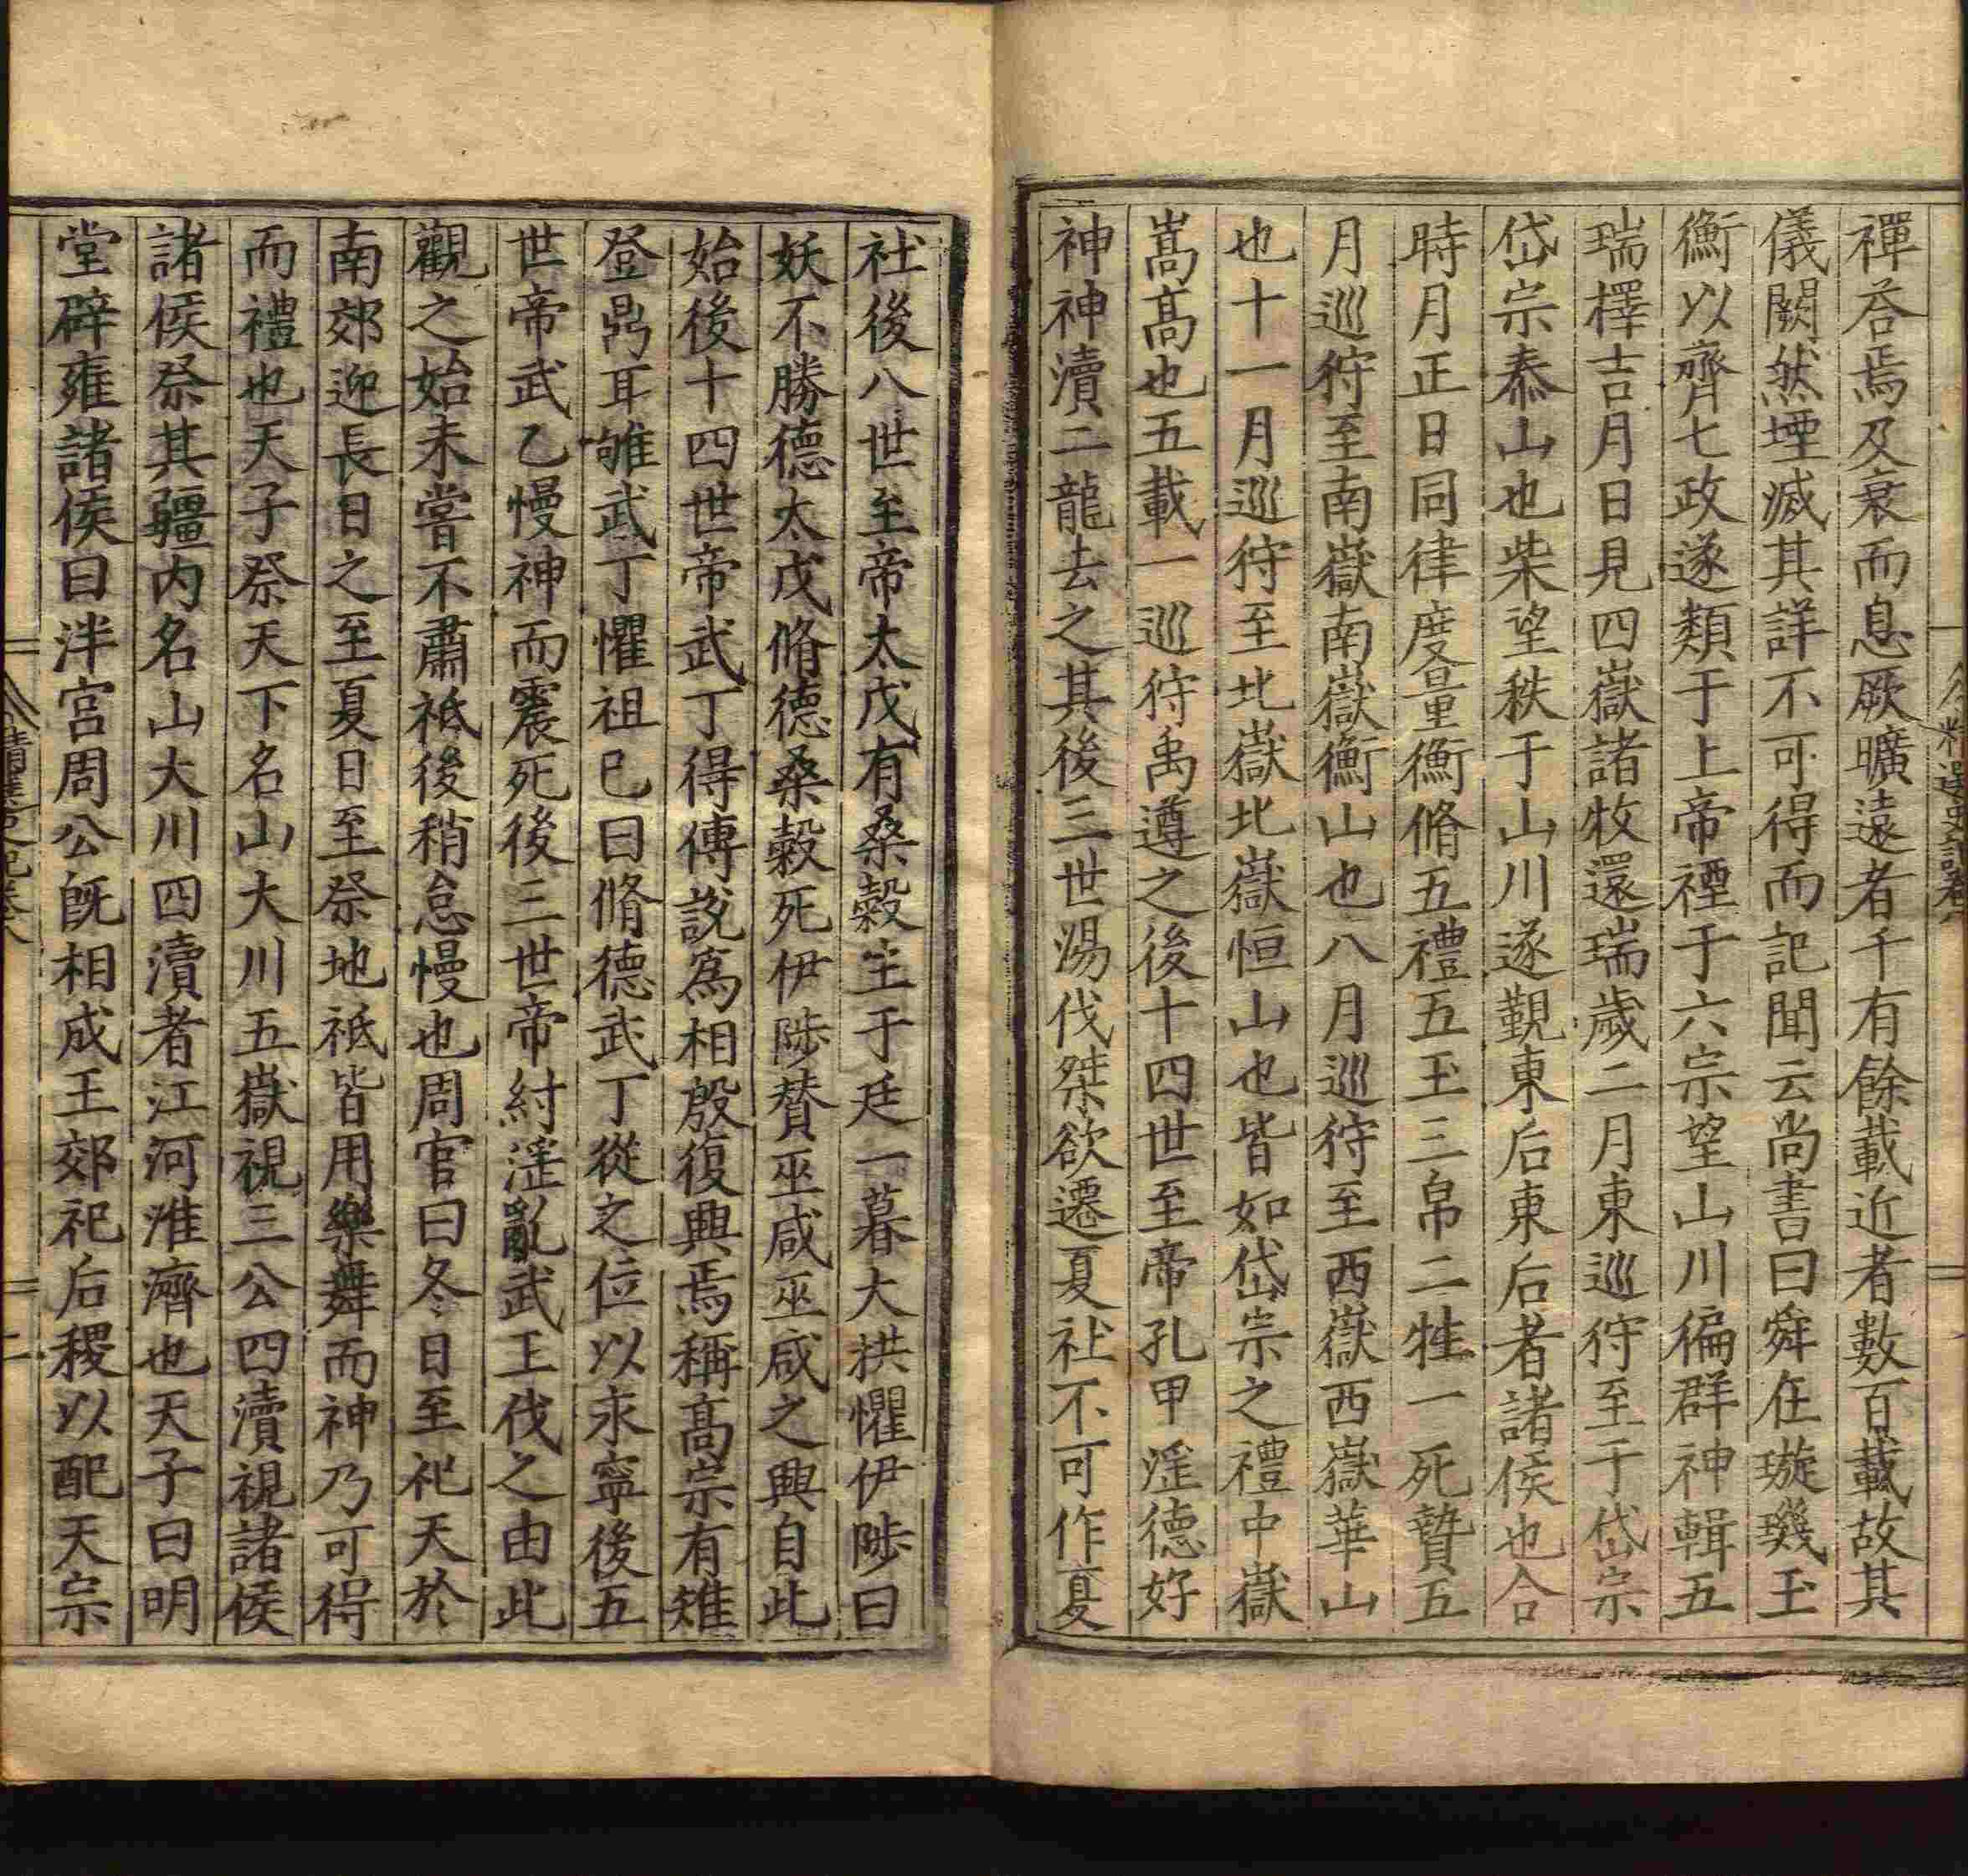 禪荅焉及衰而息厥曠遠者千有餘載近者數百載故其
儀闕然堙滅其詳不可得而記聞云尚書曰舜在璇璣玉
衡以齊七政遂類于上帝禋于六宗望山川徧群神輯五
瑞擇吉月日見四嶽諸牧還瑞歲二月東巡狩至于岱宗
岱宗泰山也柴望秩于山川遂覲東后東后者諸侯也合
時月正日同律度量衡脩五禮五玉三帛二牲一死贄五
月巡狩至南嶽南嶽衡山也八月巡狩至西嶽西嶽華山
也十一月巡狩至北嶽北嶽恒山也皆如岱宗之禮中嶽
嵩髙也五載一巡狩禹遵之後十四世至帝孔甲淫德好
神神瀆二龍去之其後三世湯伐桀欲遷夏社不可作夏
社後八世至帝太戊有桑榖生于廷一暮大拱懼伊陟曰
妖不勝德太戊脩德桑榖死伊陟賛巫咸巫咸之興自此
始後十四世帝武丁得傅說爲相殷復興焉稱髙宗有雉
登鼎耳雊武丁懼祖已曰脩德武丁從之位以永寧後五
世帝武乙慢神而震死後三世帝紂淫亂武王伐之由此
觀之始未嘗不肅祗後稍怠慢也周官曰冬日至祀天於
南郊迎長日之至夏日至祭地祗皆用樂舞而神乃可得
而禮也天子祭天下名山大川五嶽視三公四瀆視諸侯
諸侯祭其疆内名山大川四瀆者江河淮濟也天子曰明
堂辟雍諸侯曰泮宮周公旣相成王郊祀后稷以配天宗